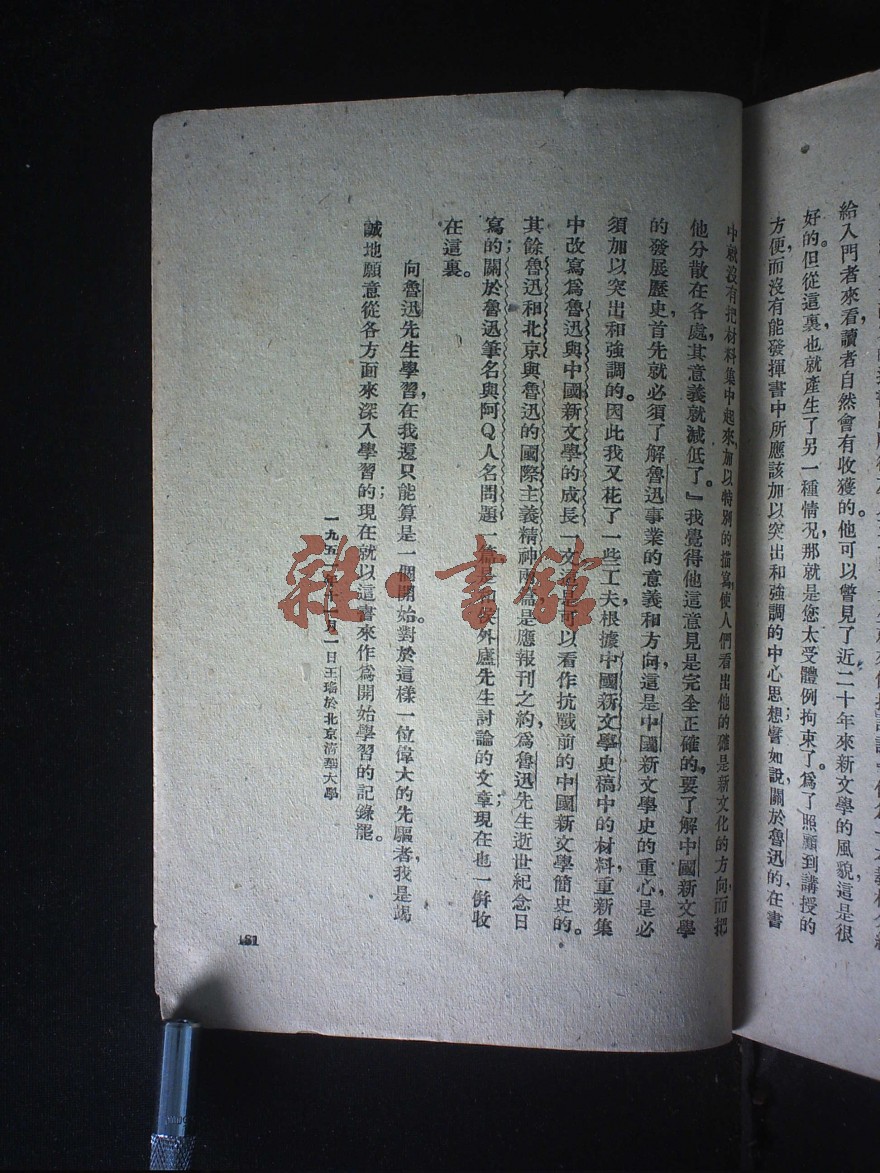 給入門者來看，讀者自然會有收獲的。他可以瞥見了近二十年來新文學的風貌，這是很
好的。但從這裏，也就產生了另一種情況，那就是您太受體例拘束了。爲了照顧到講授的
方便，而沒有能發揮書中所應該加以突出和強調的中心思想；譬如說，關於魯迅的，在書
中就沒有把材料集中起來，加以特別的描寫，使人們看出他的確是新文化的方向，而把
他分散在各處，其意義就減低了。』我覺得他這意見是完全正確的，要了解中國新文學
的發展歷史，首先就必須了解魯迅事業的意義和方向，這是中國新文學史的重心，是必
須加以突出和強調的。因此我又花了一些工夫，根據中國新文學史稿中的材料，重新集
中改寫爲魯迅與中國新文學的成長一文，這是可以看作抗戰前的中國新文學簡史的。
其餘魯迅和北京與魯迅的國際主義精神兩篇是應報刊之約，爲魯迅先生逝世紀念日
寫的；關於魯迅筆名與阿Q人名問題一篇是和侯外廬先生討論的文章；現在也一併收
在這裏。
向魯迅先生學習，在我還只能算是一個開始。對於這樣一位偉大的先驅者，我是竭
誠地願意從各方面來深入學習的；現在就以這書來作爲開始學習的記錄罷。
一九五 年十一月一日王瑤於北京清華大學
181
雜·書館